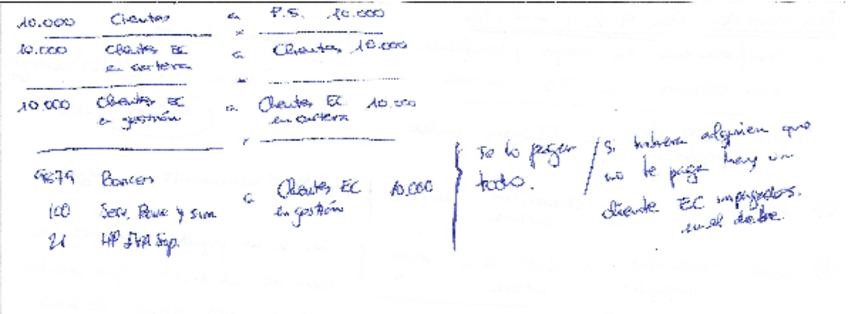 10.000 Clientes a P.S. 10.000
10.000 Clientes EC a Clientes 10.000
en cartera
10.000 Clientes EC a Clientes EC 10.000
en gestión en cartera
9879 Bancos
a Clientes EC 10.000
en gestión
100 Serv. Banc y sim
21 HP IVA Sop.
Te lo pagan
todo.
/ Si hubiera alguien que
no te paga hay un
cliente EC impagados
en el debe